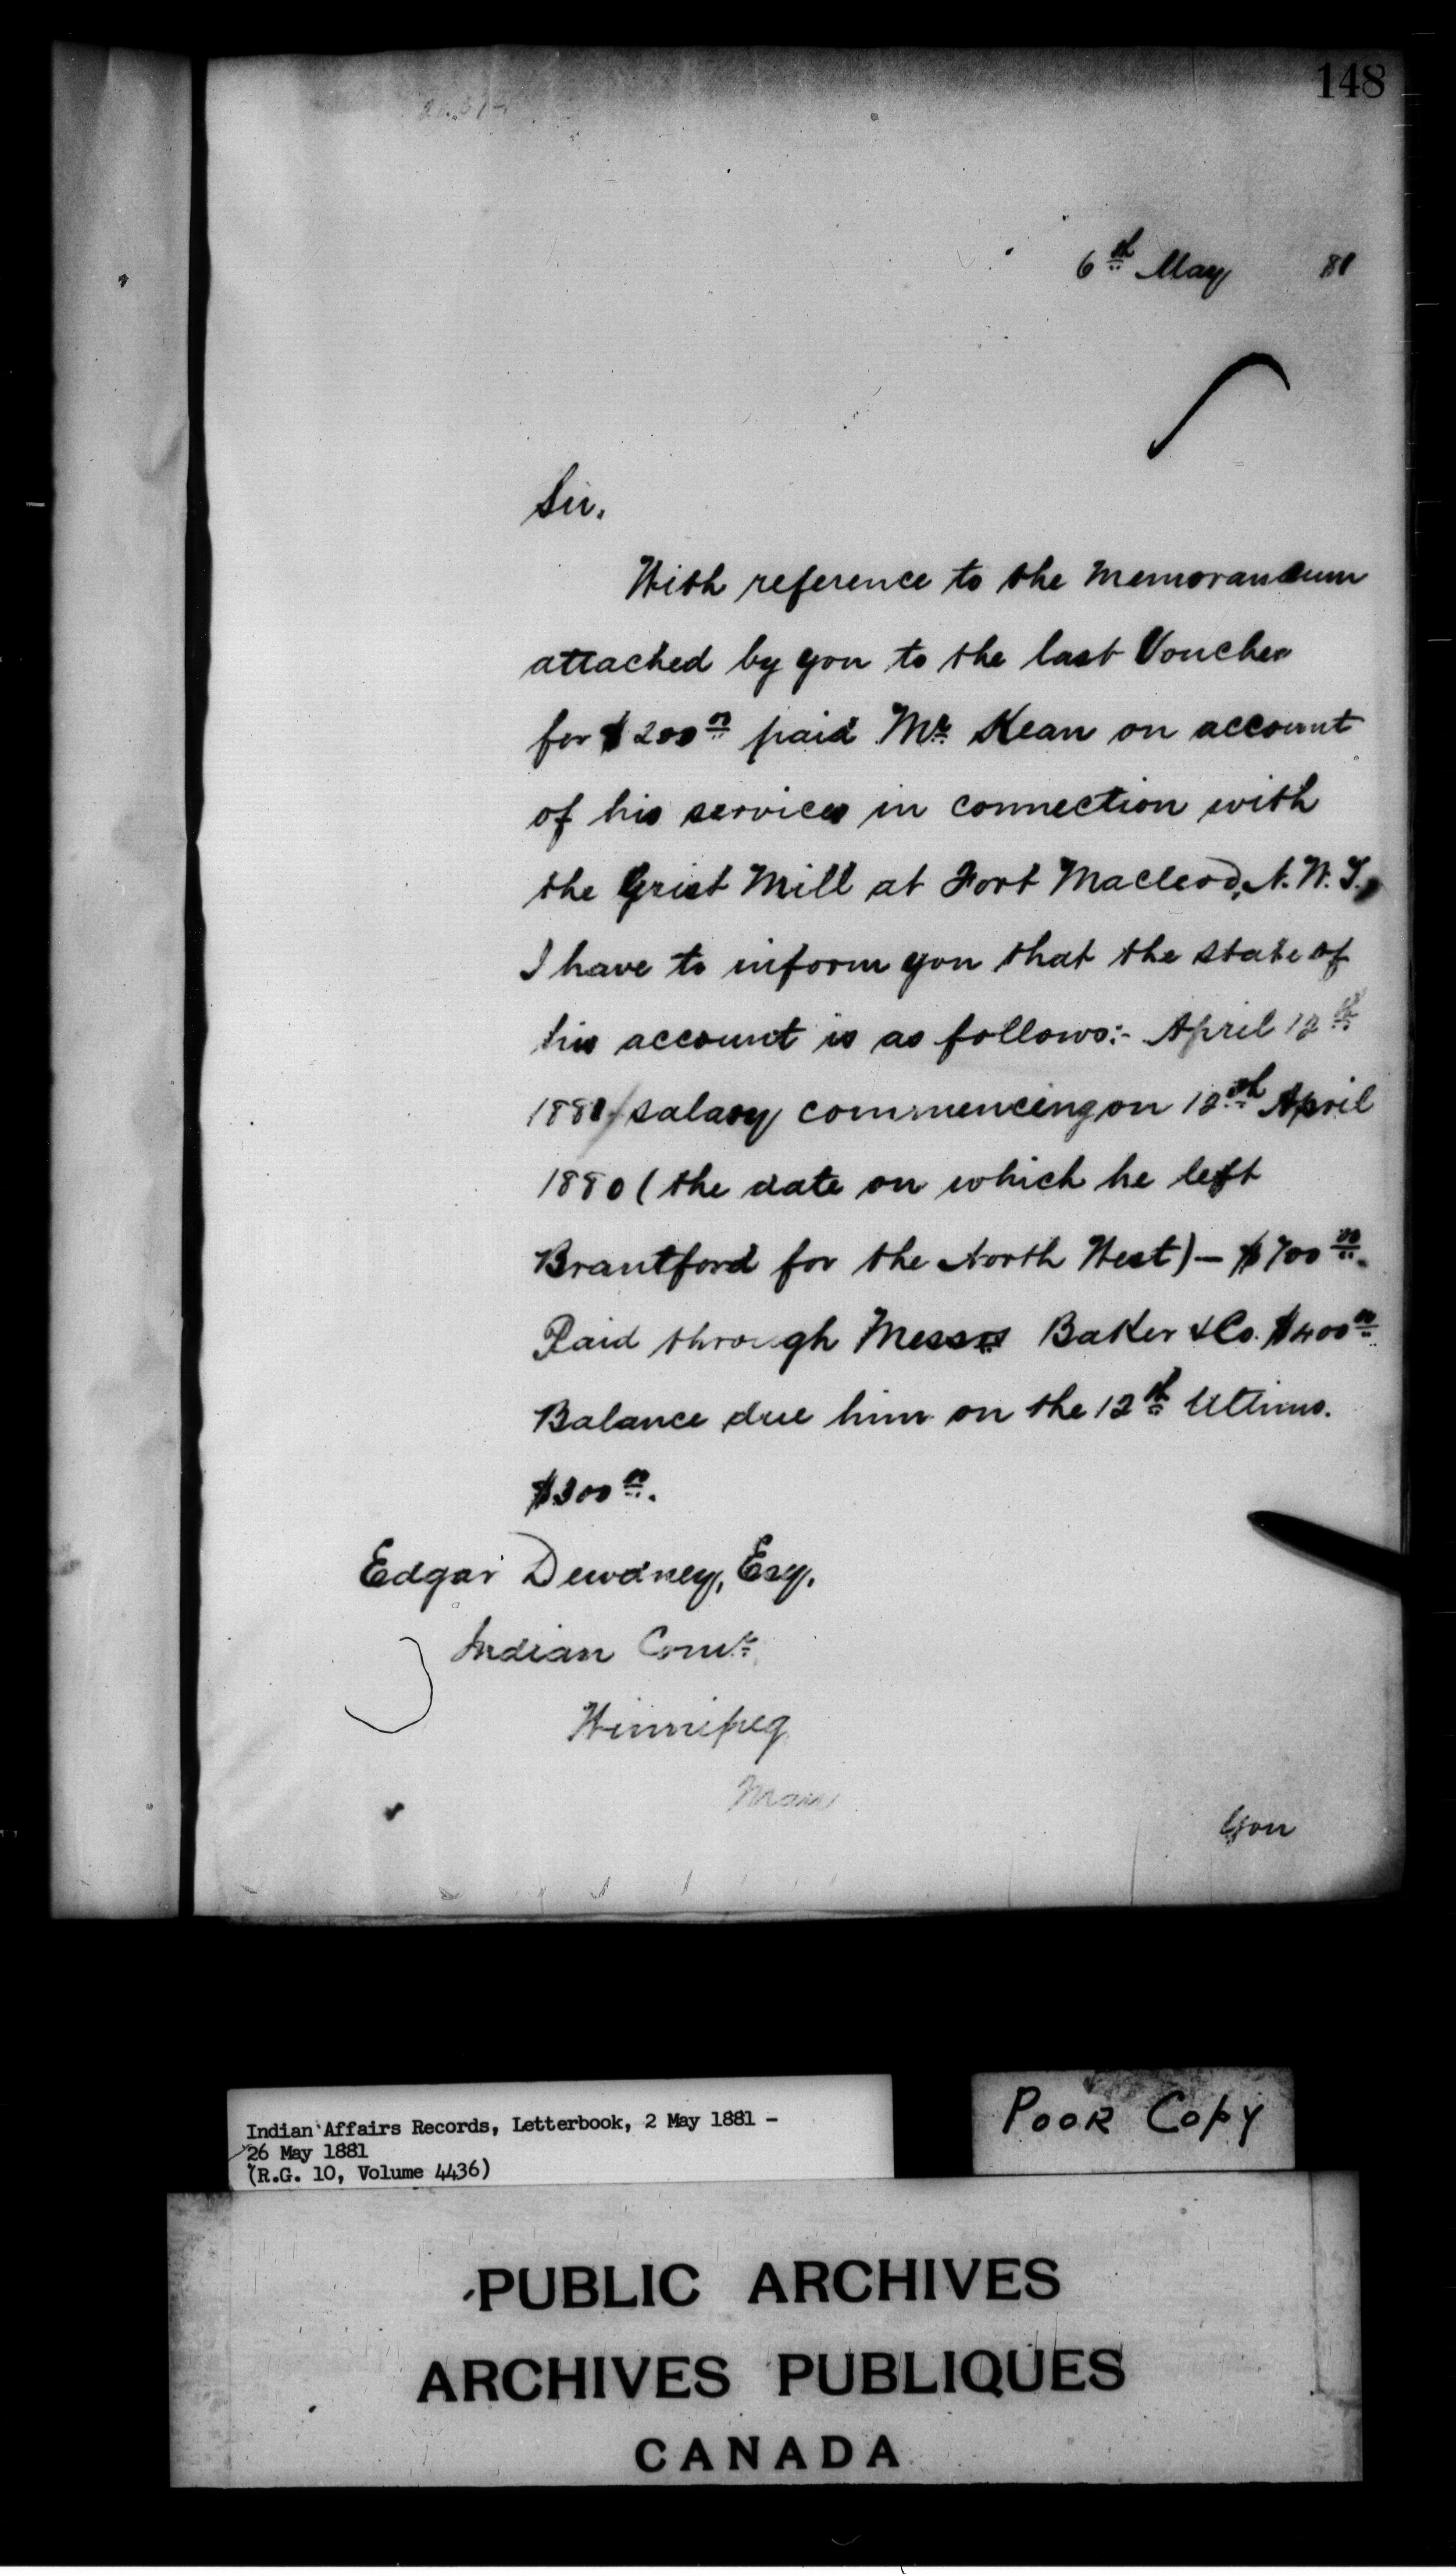 148
6th May 81
Sir.
With reference to the memorandum
attached by you to the last Voucher
for $200.00 paid Mr. Kean on account
of his services in connection with
the Grist Mill at Fort Macleod, N.W.T.,
I have to inform you that the state of
his account is as follows:- April 12th
1881/salary commencing on 12th April
1880 (the date on which he left
Brantford for the North West) – $700.00.
Paid through Messrs Baker & Co. $400.00
Balance due him on the 12th Ultimo.
$300.00.
Edgar Dewdney, Esq.
Indian Comr.
Winnipeg
Man
You
Indian Affairs Records, Letterbook, 2 May 1881 -
26 May 1881
(R.G. 10, Volume 4436)
POOR COPY
PUBLIC ARCHIVES
ARCHIVES PUBLIQUES
CANADA